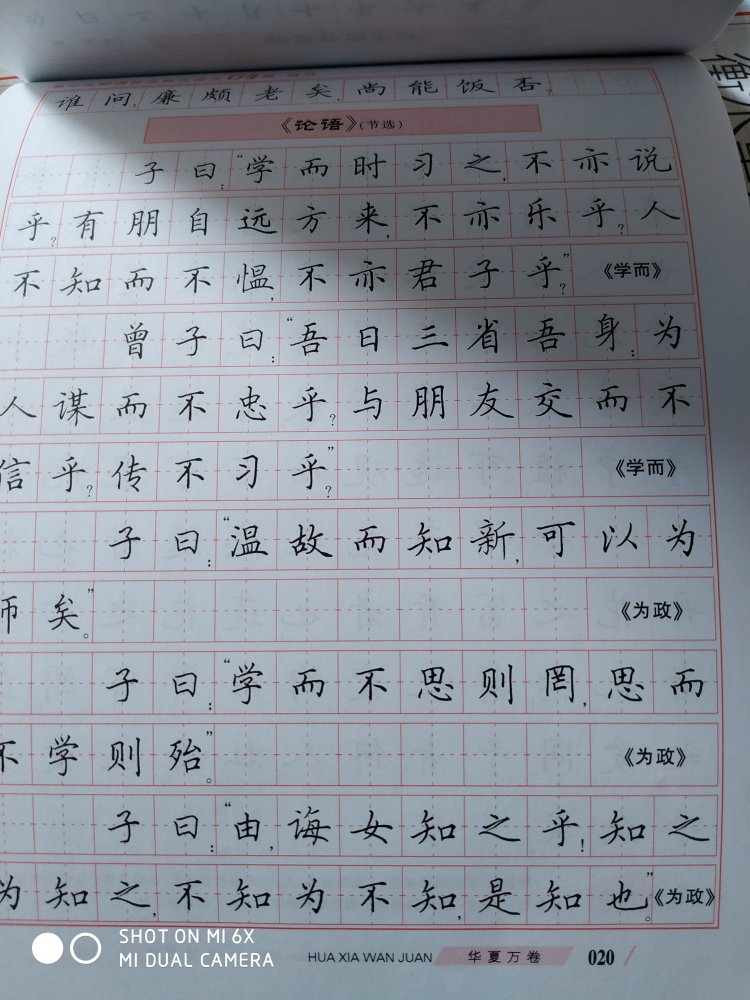 谁问：廉颇老矣，尚能饭否？
《论语》（节选）
子曰：“学而时习之，不亦说
乎？有朋自远方来，不亦乐乎？人
不知而不愠，不亦君子乎？” 《学而》
曾子曰：“吾日三省吾身：为
人谋而不忠乎？与朋友交而不
信乎？传不习乎？” 《学而》
子曰：“温故而知新，可以为
师矣。” 《为政》
子曰：“学而不思则罔，思而
不学则殆。” 《为政》
子曰：“由，诲女知之乎！知之
为知之，不知为不知，是知也。” 《为政》
SHOT ON MI 6X
MI DUAL CAMERA
HUA XIA WAN JUAN 华夏万卷 020